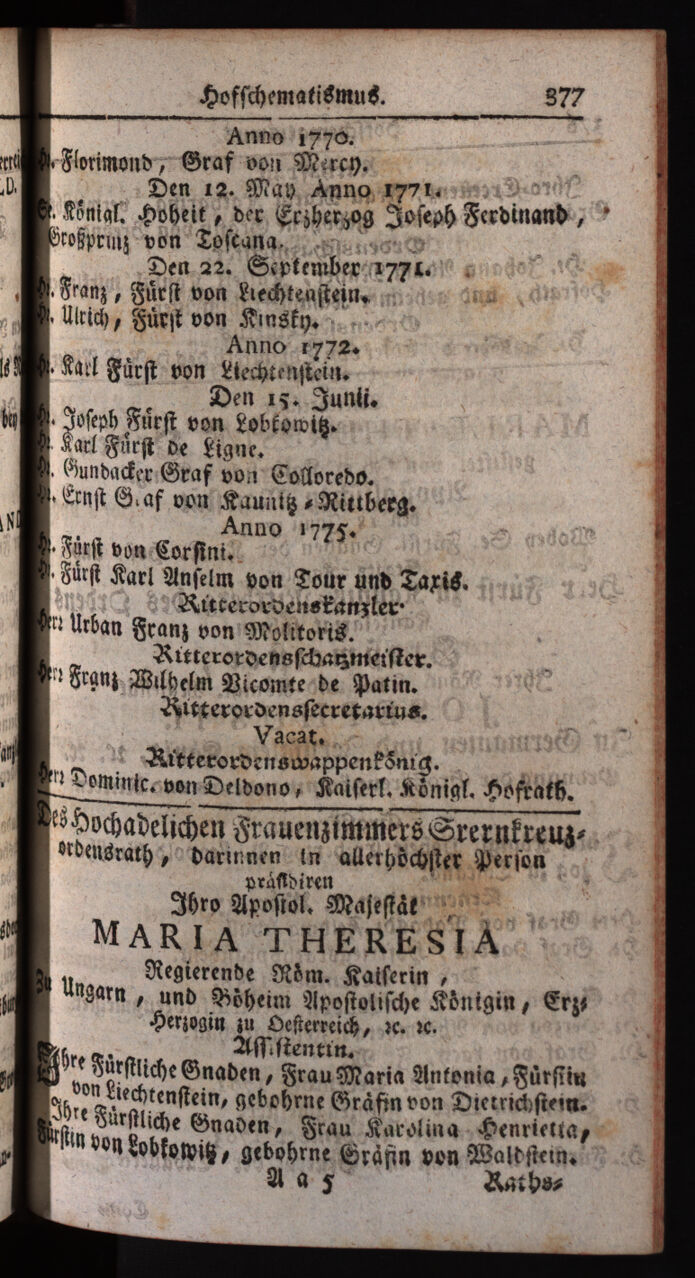 Hofschematismus. 377
Anno 1770.
Hr. Florimond, Graf von Mercy.
Den 12. May Anno 1771.
Se. Königl. Hoheit, der Erzherzog Joseph Ferdinand,
Großprinz von Toscana.
Den 22. September 1771.
Hr. Franz, Fürst von Liechtenstein.
Hr. Ulrich, Fürst von Kinsky.
Anno 1772.
Hr. Karl Fürst von Liechtenstein.
Den 15. Junii.
Hr. Joseph Fürst von Lobkowitz.
Hr. Karl Fürst de Ligne.
Hr. Gundacker Graf von Colloredo.
Hr. Ernst Graf von Kaunitz-Rittberg.
Anno 1775.
Hr. Fürst von Corsini.
Hr. Fürst Karl Anselm von Tour und Taxis.
Ritterordenskanzler.
Herr Urban Franz von Molitoris.
Ritterordensschatzmeister.
Herr Franz Wilhelm Vicomte de Patin.
Ritterordenssecretarius.
Vacat.
Ritterordenswappenkönig.
Herr Dominic. von Deldono, Kaiserl. Königl. Hofrath.
Des Hochadelichen Frauenzimmers Srernkreuz-
ordensrath, darinnen in allerhöchster Person
präsidiren
Ihro Apostol. Majestät
MARIA THERESIA
Regierende Röm. Kaiserin,
Zu Ungarn, und Böheim Apostolische Königin, Erz-
Herzogin zu Oesterreich, ꝛc. ꝛc.
Assistentin.
Ihre Fürstliche Gnaden, Frau Maria Antonia, Fürstin
von Liechtenstein, gebohrne Gräfin von Dietrichstein.
Ihre Fürstliche Gnaden, Frau Karolina Henrietta,
Fürstin von Lobkowitz, gebohrne Gräfin von Waldstein.
A a 5 Raths-